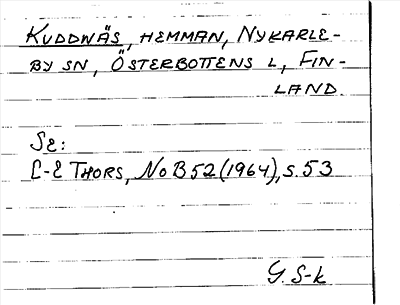 KUDDNÄS, HEMMAN, NYKARLE-
BY SN, ÖSTERBOTTENS L, FIN-
LAND.
SE:
L-E THORS, NoB 52 (1964), S. 53
G. S-k